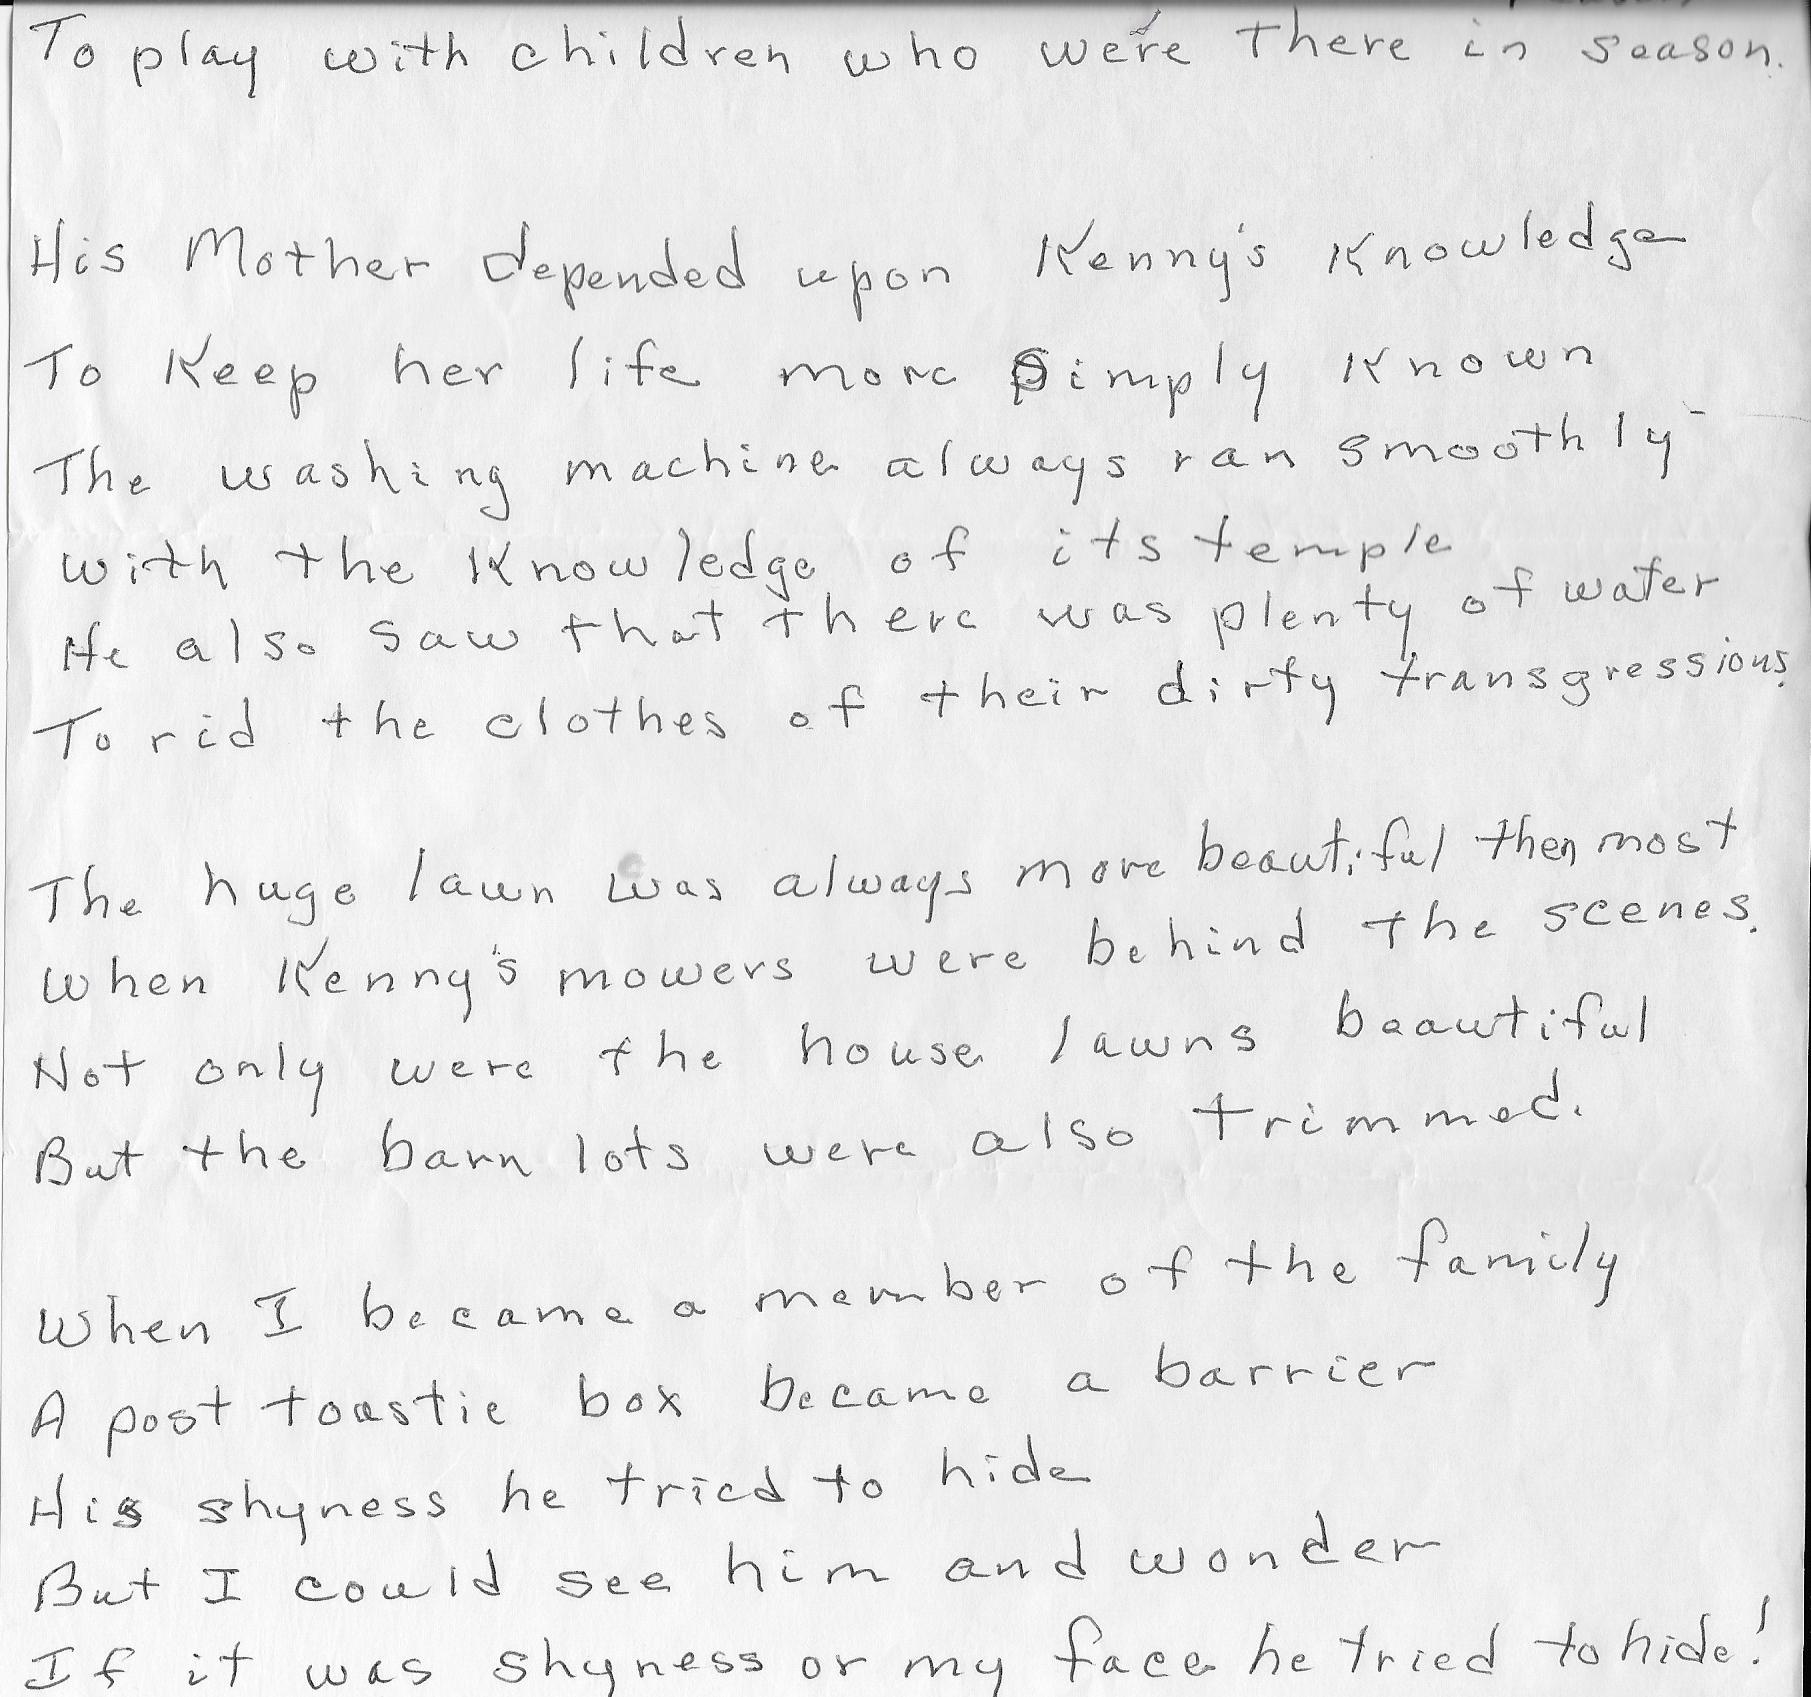 To play with children who were there in season.
His Mother depended upon Kenny's Knowledge
To Keep her life more Simply Known
The washing machine always ran smoothly
with the Knowledge of its temple
He also saw that there was plenty of water
To rid the clothes of their dirty transgressions.
The huge lawn was always more beautiful then most
When Kenny's mowers were behind the scenes.
Not only were the house lawns beautiful
But the barn lots were also trimmed.
When I became a member of the family
A post toastie box became a barrier
His shyness he tried to hide
But I could see him and wonder
If it was shyness or my face he tried to hide!